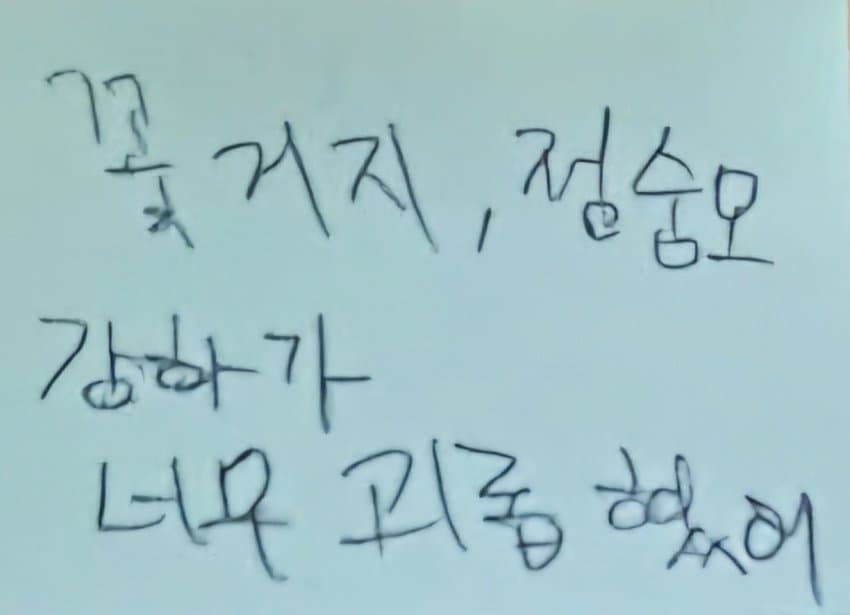 꽃거지, 정숨모
강하가
너무 괴롭혔어